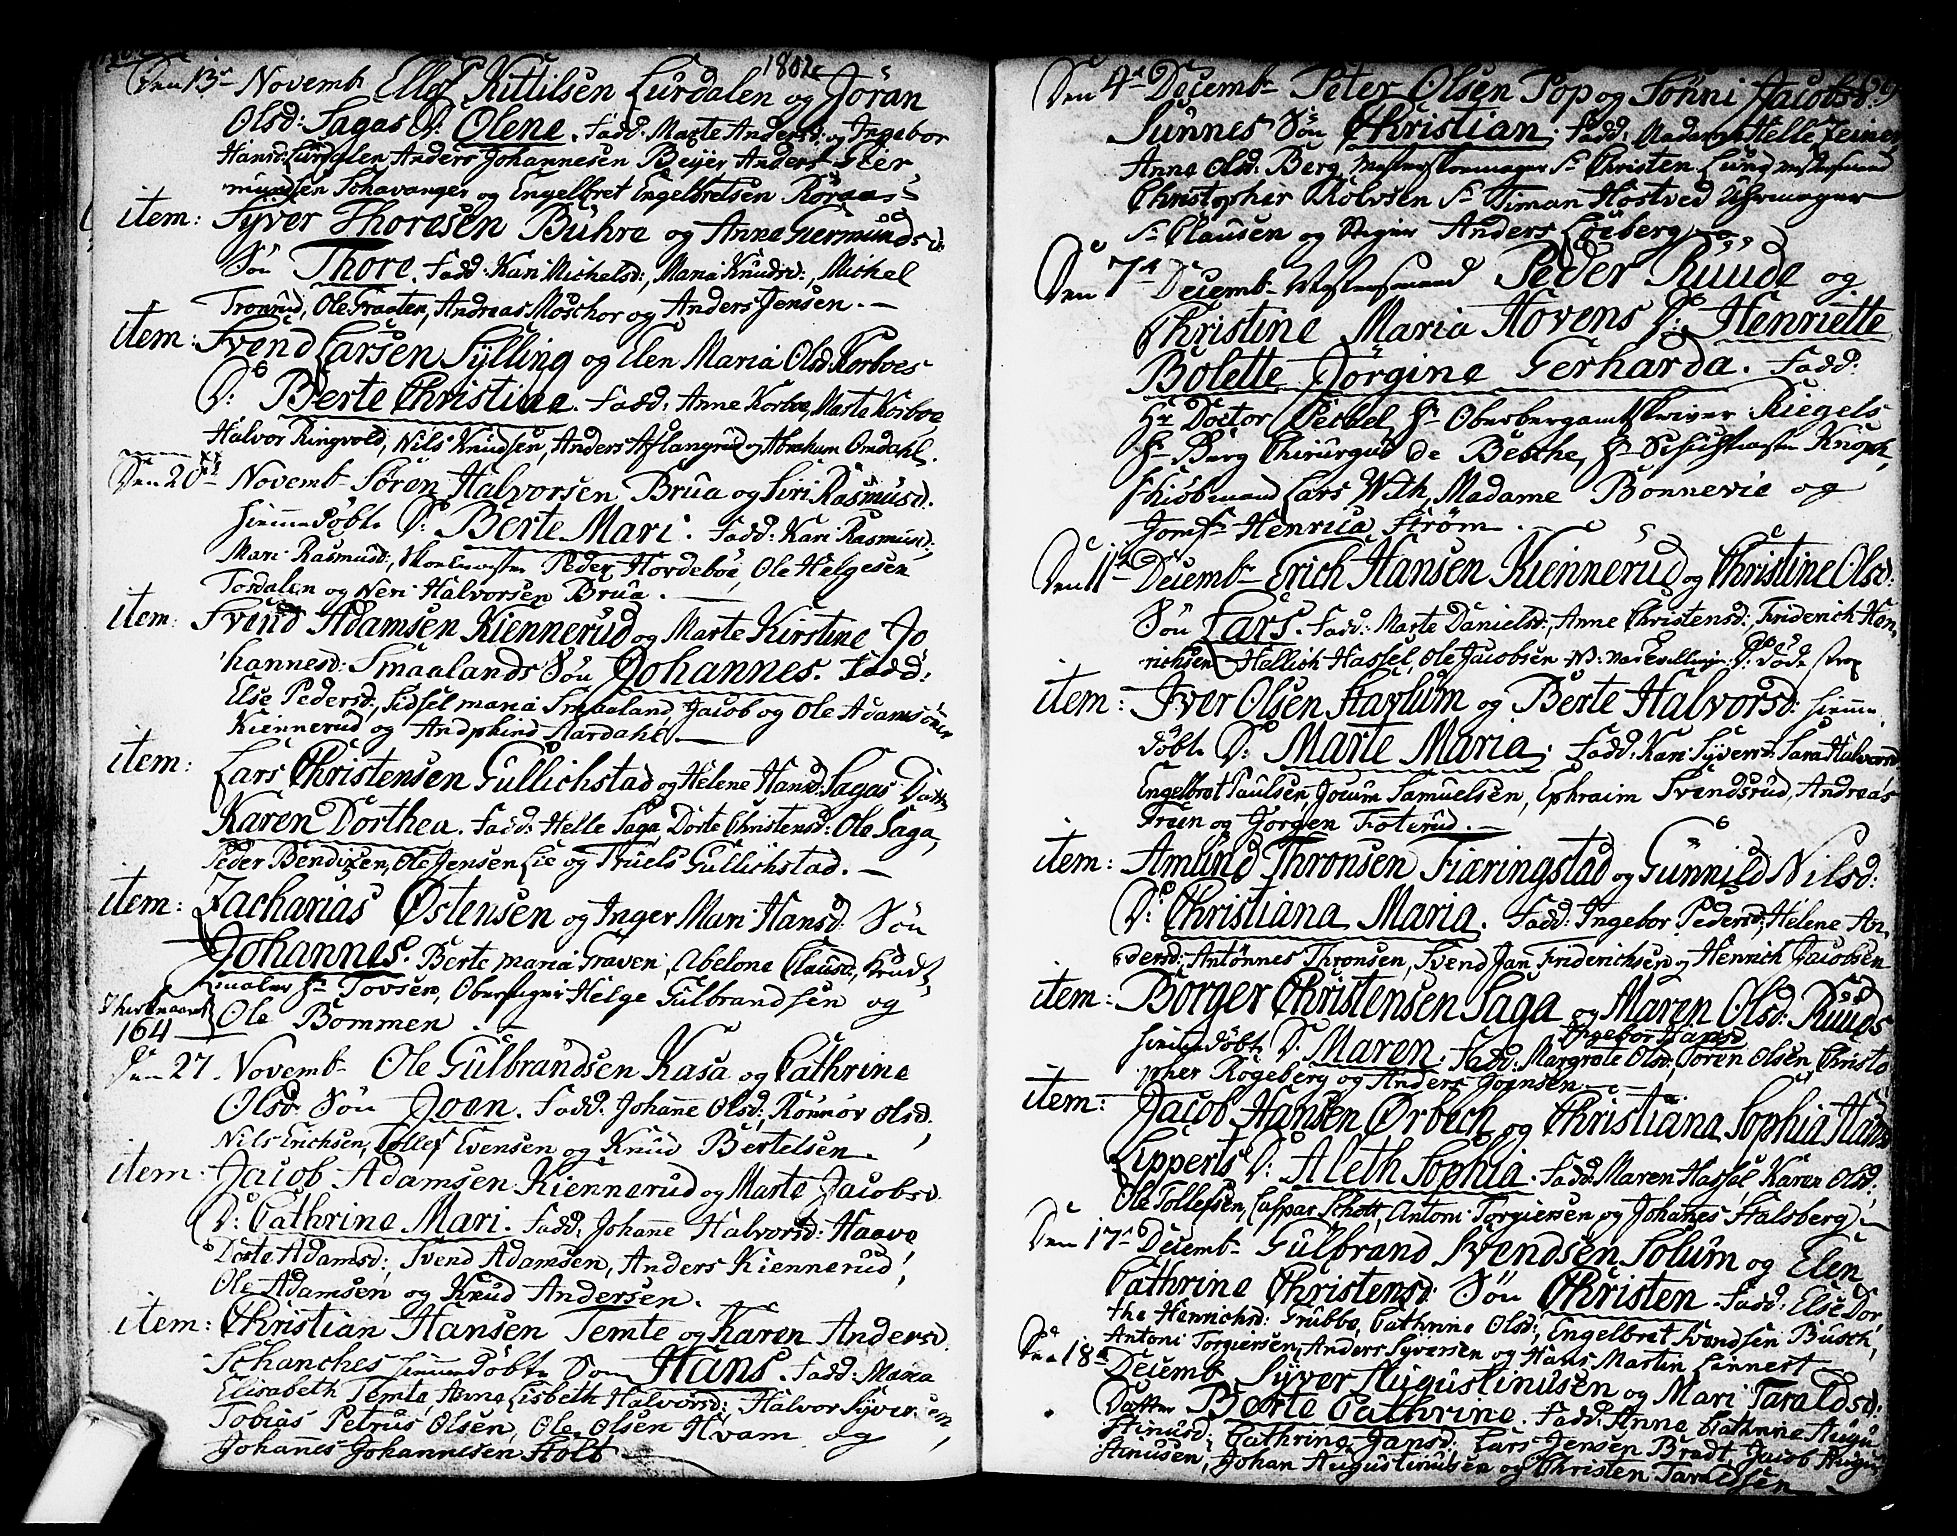 1802
Den 13de Novemb Ellef Kittilsen Lurdalen og Jöran
Olsd: Sagas D: Olene. Fadd: Marte Andersd: og Ingebor
Hansd: Lurdalen Anders Johannesen Beyer Anders
Schavanger og Engelbret Engelbretsen Röraas
item: Syver Thoresen Buhre og Anne Giermundsd
Sön Thore. Fadd: Kari Michelsd:, Maria Knudsd:, Michel
Tronrud, Ole Graaten, Andreas Moschor og Anders Jensen.
item: Svend Larsen Sylling og Elen Maria Olsd: Korboes
D: Berte Christine. Fadd: Anne Korboe, Marte Korboe
Halvor Ringvold, Nils Knudsen, Anders Aslangrud og Abraham Omdahl.
Den 20de Novemb Sören Halvorsen Brua og Siri Rasmusd.
hiemmedöbt D: Berte Mari. Fadd: Kari Rasmusd:,
Mari Rasmusd:, Peder Hordeboe, Ole Helgesen
Tosdalen og Neri Halvorsen Brua.
item: Svend Adamsen Kiennerud og Marte Kirstine Jo
hannesd: Smaalands Sön Johannes. Fadd:
Else Pedersd:, Sidsel maria Smaaland, Jacob og Ole Adamsönner
Kiennerud og Andphind Aardahl.
item: Lars Christensen Gullichstad og Helene Hansd: Sagas Datter
Karen Dorthea. Fadd: Helle Saga, Dorte Christensd: Ole Saga,
Peder Bendixen, Ole Jensen Lie og Truels Gullichstad.
item: Zacharias Østensen og Inger Mari Hansd: Sön
Johannes. Berte maria Graven, Abelone Clausd:,
Hr Tovsen, Helge Gulbrandsen og
164 Ole Bommen
Den 27 Novemb Ole Gulbrandsen Kasa og Cathrine
Olsd Sön Joen. Fadd: Johanne Olsd:, Rönnov Olsd:,
Nils Erichsen, Tollef Evensen og Knud Bertelsen
item: Jacob Adamsen Kiennerud og Marte Jacobsd
D: Cathrine Mari. Fadd: Johanne Halvorsd: Haave
Dorte Adamsd:, Svend Adamsen, Anders Kiennerud,
Ole Adamsen og Knud Andersen.
item: Christian Hansen Temte og Karen Andersd.
Schanches hiemmedöbt Sön Hans. Fadd: Maria
Elisabeth Temte, Anne Lisbeth Halvorsd: Halvor Syversen,
Tobias Petrus Olsen, Ole Olsen Hvam og
Johannes Johannesen Holt
Den 4de Decemb Peter Olsen Pop og Söhni Jacobsd:
Sunnes Sön Christian. Fadd: Madam Helle Zeiner,
Anne Olsd: Berg Hr Christen Lund
Christopher Rolvsen Hr Timan Hostved Uhrmager
Hr Clausen og Anders Löeberg
Den 7de Decemb Peder Ruude og
Christine Maria Hovens D: Henriette
Bolette Jörgine Gerharda. Fadd:
Hr Doctor Peckel, Hr Oberbergamtskriver Riegels
Hr Berg Chirurgus de Besche, Hr Knoph,
Kiöbmand Lars With, Madame Bonnevie og
Jomfr Henrica Ström.
Den 11te Decemb Erich Hansen Kiennerud og Christine Olsd:
Sön Lars. Fadd: Marte Danielsd:, Anne Christensd:, Friderich Hen
richsen, Hallich Hassel, Ole Jacobsen NB var Tvillinger D: döde strax
item: Iver Olsen Havlum og Berte Halvorsd: hiemme
döbt D: Marte Maria. Fadd: Kari Syversd: Sara Halvorsd
Engelbret Paulsen, Jocum Samuelsen, Ephraim Svendsrud, Andreas
Green og Jörgen Foterud.
item: Amund Thronsen Fiæringstad og Gunnild Nilsd:
D: Christiana Maria. Fadd: Ingebor Pedersd:, Helene An,
dersd: Antönnes Thronsen, Svend Jan Friderichsen og Henrich Jacobsen
item: Börger Christensen Saga og Maren Olsd: Ruuds
Ingebor Hansd
hiemmedöbt D: Maren. Fadd: Margrete Olsd:, Sören Olsen, Christo
pher Rogeberg og Anders Joensen.
item: Jacob Hansen Ørbech og Christiana Sophia Hans
Lipperts D: Aleth Sophia. Fadd: Maren Hassel, Karen Olsd:,
Ole Tollefsen, Caspar Schott, Antoni Torgiersen og Johanes Halsberg
Den 17de Decemb Gulbrand Svendsen Solum og Elen
Cathrine Christensd: Sön Christen. Fadd: Else Dor,
the Henrichsd: Grubbe, Cathrine Olsd:, Engelbret Svendsen Busch,
Antoni Torgiersen, Anders Syversen og Hans Martin Linnert
Den 18de Decemb Syver Augustinusen og Mari Taraldsd:
Datter Berte Cathrine. Fadd: Anne Cathrine Augu
stinusd: Cathrine Jansd:, Lars Jensen Bradt, Jacob Augu
stinusen, Johan Augustinusen og Christen Taraldsen